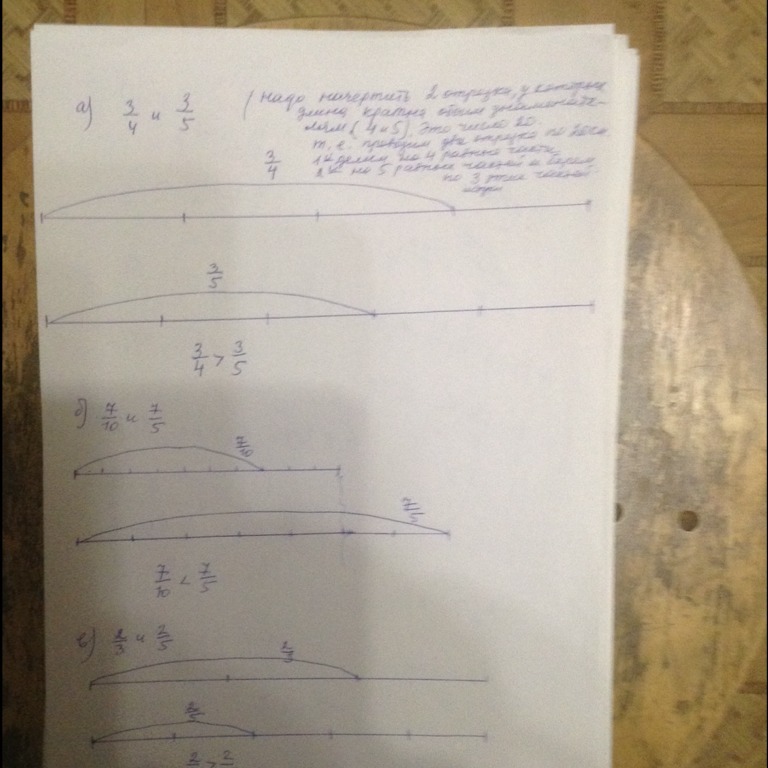 а) 3/4 и 3/5
(надо начертить 2 отрезка, у которых
длина кратна обоим знаменате-
лям (4 и 5). Это число 20.
т.е. проводим два отрезка по 20см.
1й делим на 4 равные части
2й на 5 равных частей и берем
по 3 этих частей
3/4
3/5
3/4 > 3/5
б) 7/10 и 7/5
7/10
7/5
7/10 < 7/5
в) 2/3 и 2/5
2/3
2/5
2 > 2